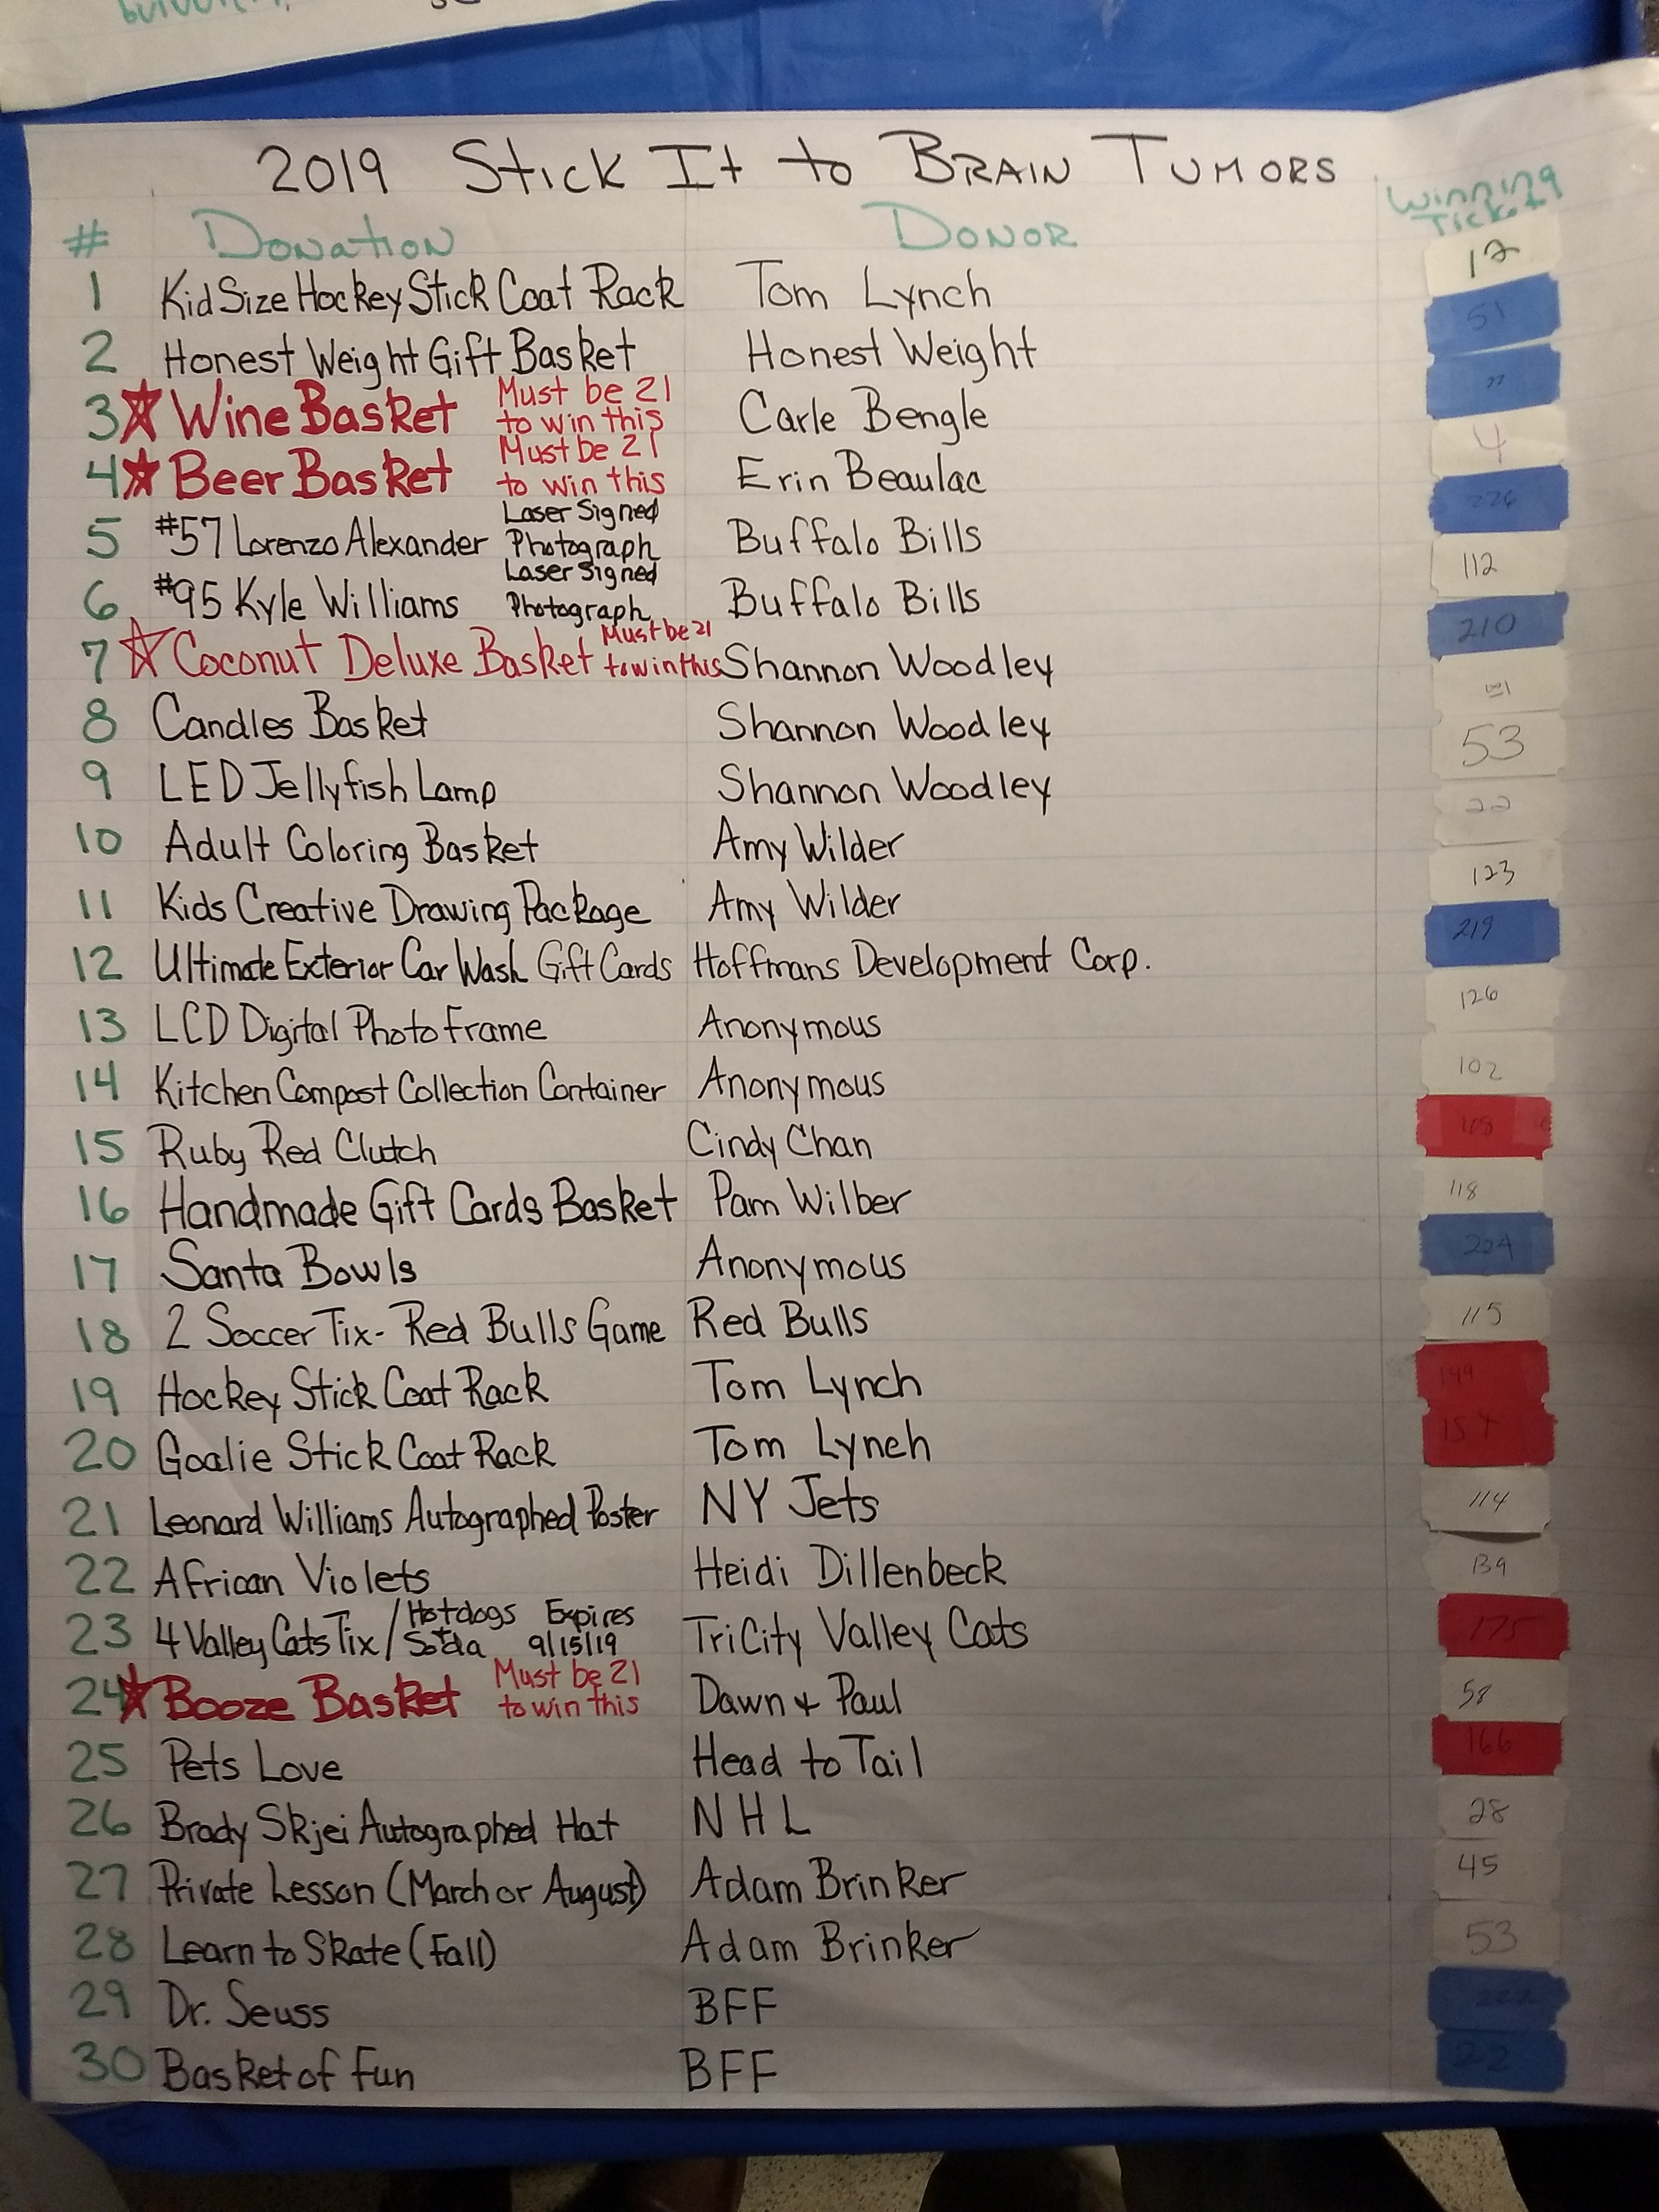 2019 Stick It to Brain Tumors
# Donation Donor Winning Ticket
1 Kid Size Hockey Stick Coat Rack Tom Lynch 12
2 Honest Weight Gift Basket Honest Weight 51
3 Wine Basket Must be 21 to win this Carle Bengle 77
4 Beer Basket Must be 21 to win this Erin Beaulac 4
5 #57 Lorenzo Alexander Laser Signed Photograph Buffalo Bills 226
6 #95 Kyle Williams Laser Signed Photograph Buffalo Bills 112
7 Coconut Deluxe Basket Must be 21 to win this Shannon Woodley 210
8 Candles Basket Shannon Woodley
9 LED Jellyfish Lamp Shannon Woodley 53
10 Adult Coloring Basket Amy Wilder 22
11 Kids Creative Drawing Package Amy Wilder 123
12 Ultimate Exterior Car Wash Gift Cards Hoffmans Development Corp. 219
13 LCD Digital Photo Frame Anonymous 126
14 Kitchen Compost Collection Container Anonymous 102
15 Ruby Red Clutch Cindy Chan
16 Handmade Gift Cards Basket Pam Wilber 118
17 Santa Bowls Anonymous 224
18 2 Soccer Tix - Red Bulls Game Red Bulls 115
19 Hockey Stick Coat Rack Tom Lynch 149
20 Goalie Stick Coat Rack Tom Lynch
21 Leonard Williams Autographed Poster NY Jets 114
22 African Violets Heidi Dillenbeck 139
23 4 Valley Cats Tix / Hotdogs + Soda Expires 9/15/19 TriCity Valley Cats 175
24 Booze Basket Must be 21 to win this Dawn + Paul 58
25 Pets Love Head to Tail 166
26 Brady Skjei Autographed Hat NHL 28
27 Private Lesson (March or August) Adam Brinker 45
28 Learn to Skate (Fall) Adam Brinker 53
29 Dr. Seuss BFF
30 Basket of Fun BFF 22